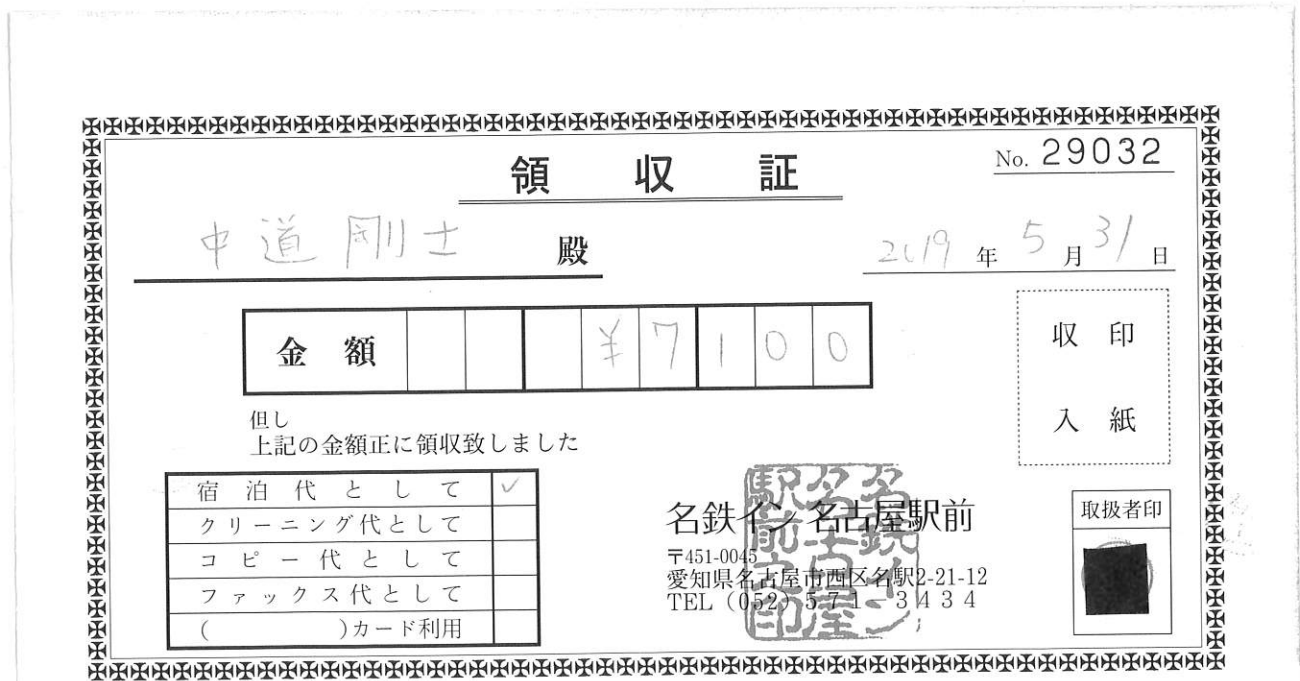 領収証
No. 29032
中道 剛士 殿
2019 年 5 月 31 日
金額 ¥7100
収入印紙
但し
上記の金額正に領収致しました
宿泊代として ✓
クリーニング代として
コピー代として
ファックス代として
( )カード利用
名鉄イン 名古屋駅前
〒451-0045
愛知県名古屋市西区名駅2-21-12
TEL (052) 571-3434
名鉄イン名古屋駅前之印
取扱者印